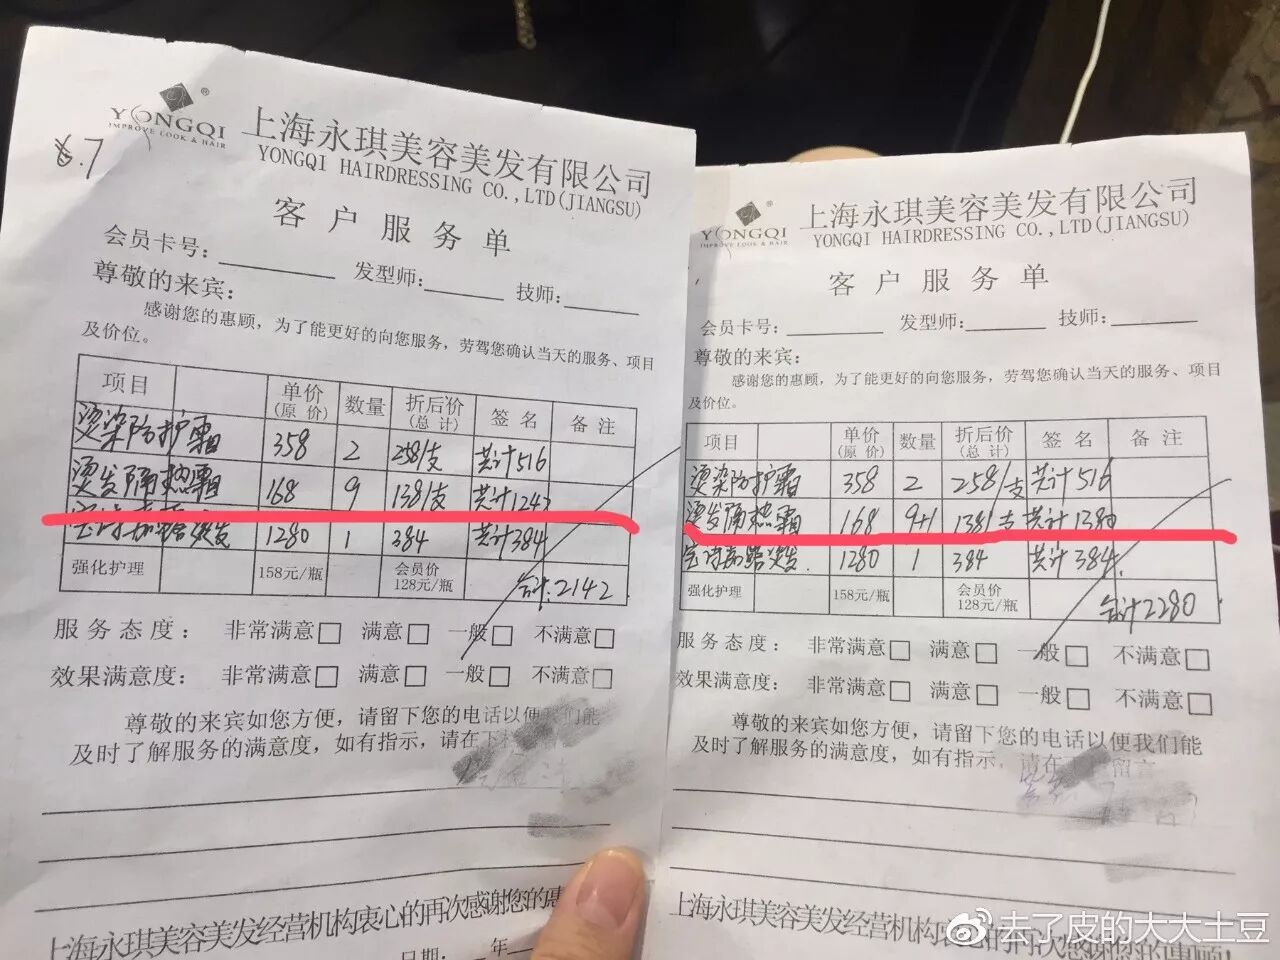 YONGQI
IMPROVE LOOK & HAIR
®
上海永琪美容美发有限公司
YONGQI HAIRDRESSING CO.,LTD(JIANGSU)
6.7
客户服务单
会员卡号: 发型师: 技师:
尊敬的来宾:
感谢您的惠顾,为了能更好的向您服务,劳驾您确认当天的服务、项目
及价位。
项目 单价 数量 折后价 签名 备注
(原价) (总计)
烫染防护霜 358 2 258/支 共计516
烫发隔热霜 168 9 138/支 共计1242
1280 1 384 共计384
强化护理 158元/瓶 会员价 合计:2142
128元/瓶
服务态度: 非常满意□ 满意□ 一般□ 不满意□
效果满意度: 非常满意□ 满意□ 一般□ 不满意□
尊敬的来宾如您方便,请留下您的电话以便我们能
及时了解服务的满意度,如有指示,请在下
上海永琪美容美发经营机构衷心的再次感谢您的惠
日期: 年
YONGQI
IMPROVE LOOK & HAIR
®
上海永琪美容美发有限公司
YONGQI HAIRDRESSING CO.,LTD(JIANGSU)
客户服务单
会员卡号: 发型师: 技师:
尊敬的来宾:
感谢您的惠顾,为了能更好的向您服务,劳驾您确认当天的服务、项目
及价位。
项目 单价 数量 折后价 签名 备注
(原价) (总计)
烫染防护霜 358 2 258/支 共计516
烫发隔热霜 168 9+1 138/支 共计1380
1280 1 384 共计384
强化护理 158元/瓶 会员价 合计2280
128元/瓶
服务态度: 非常满意□ 满意□ 一般□ 不满意□
效果满意度: 非常满意□ 满意□ 一般□ 不满意□
尊敬的来宾如您方便,请留下您的电话以便我们能
及时了解服务的满意度,如有指示,请在下 留言
上海永琪美容美发经营机构衷心的再次感谢您的惠顾!
@去了皮的大大土豆